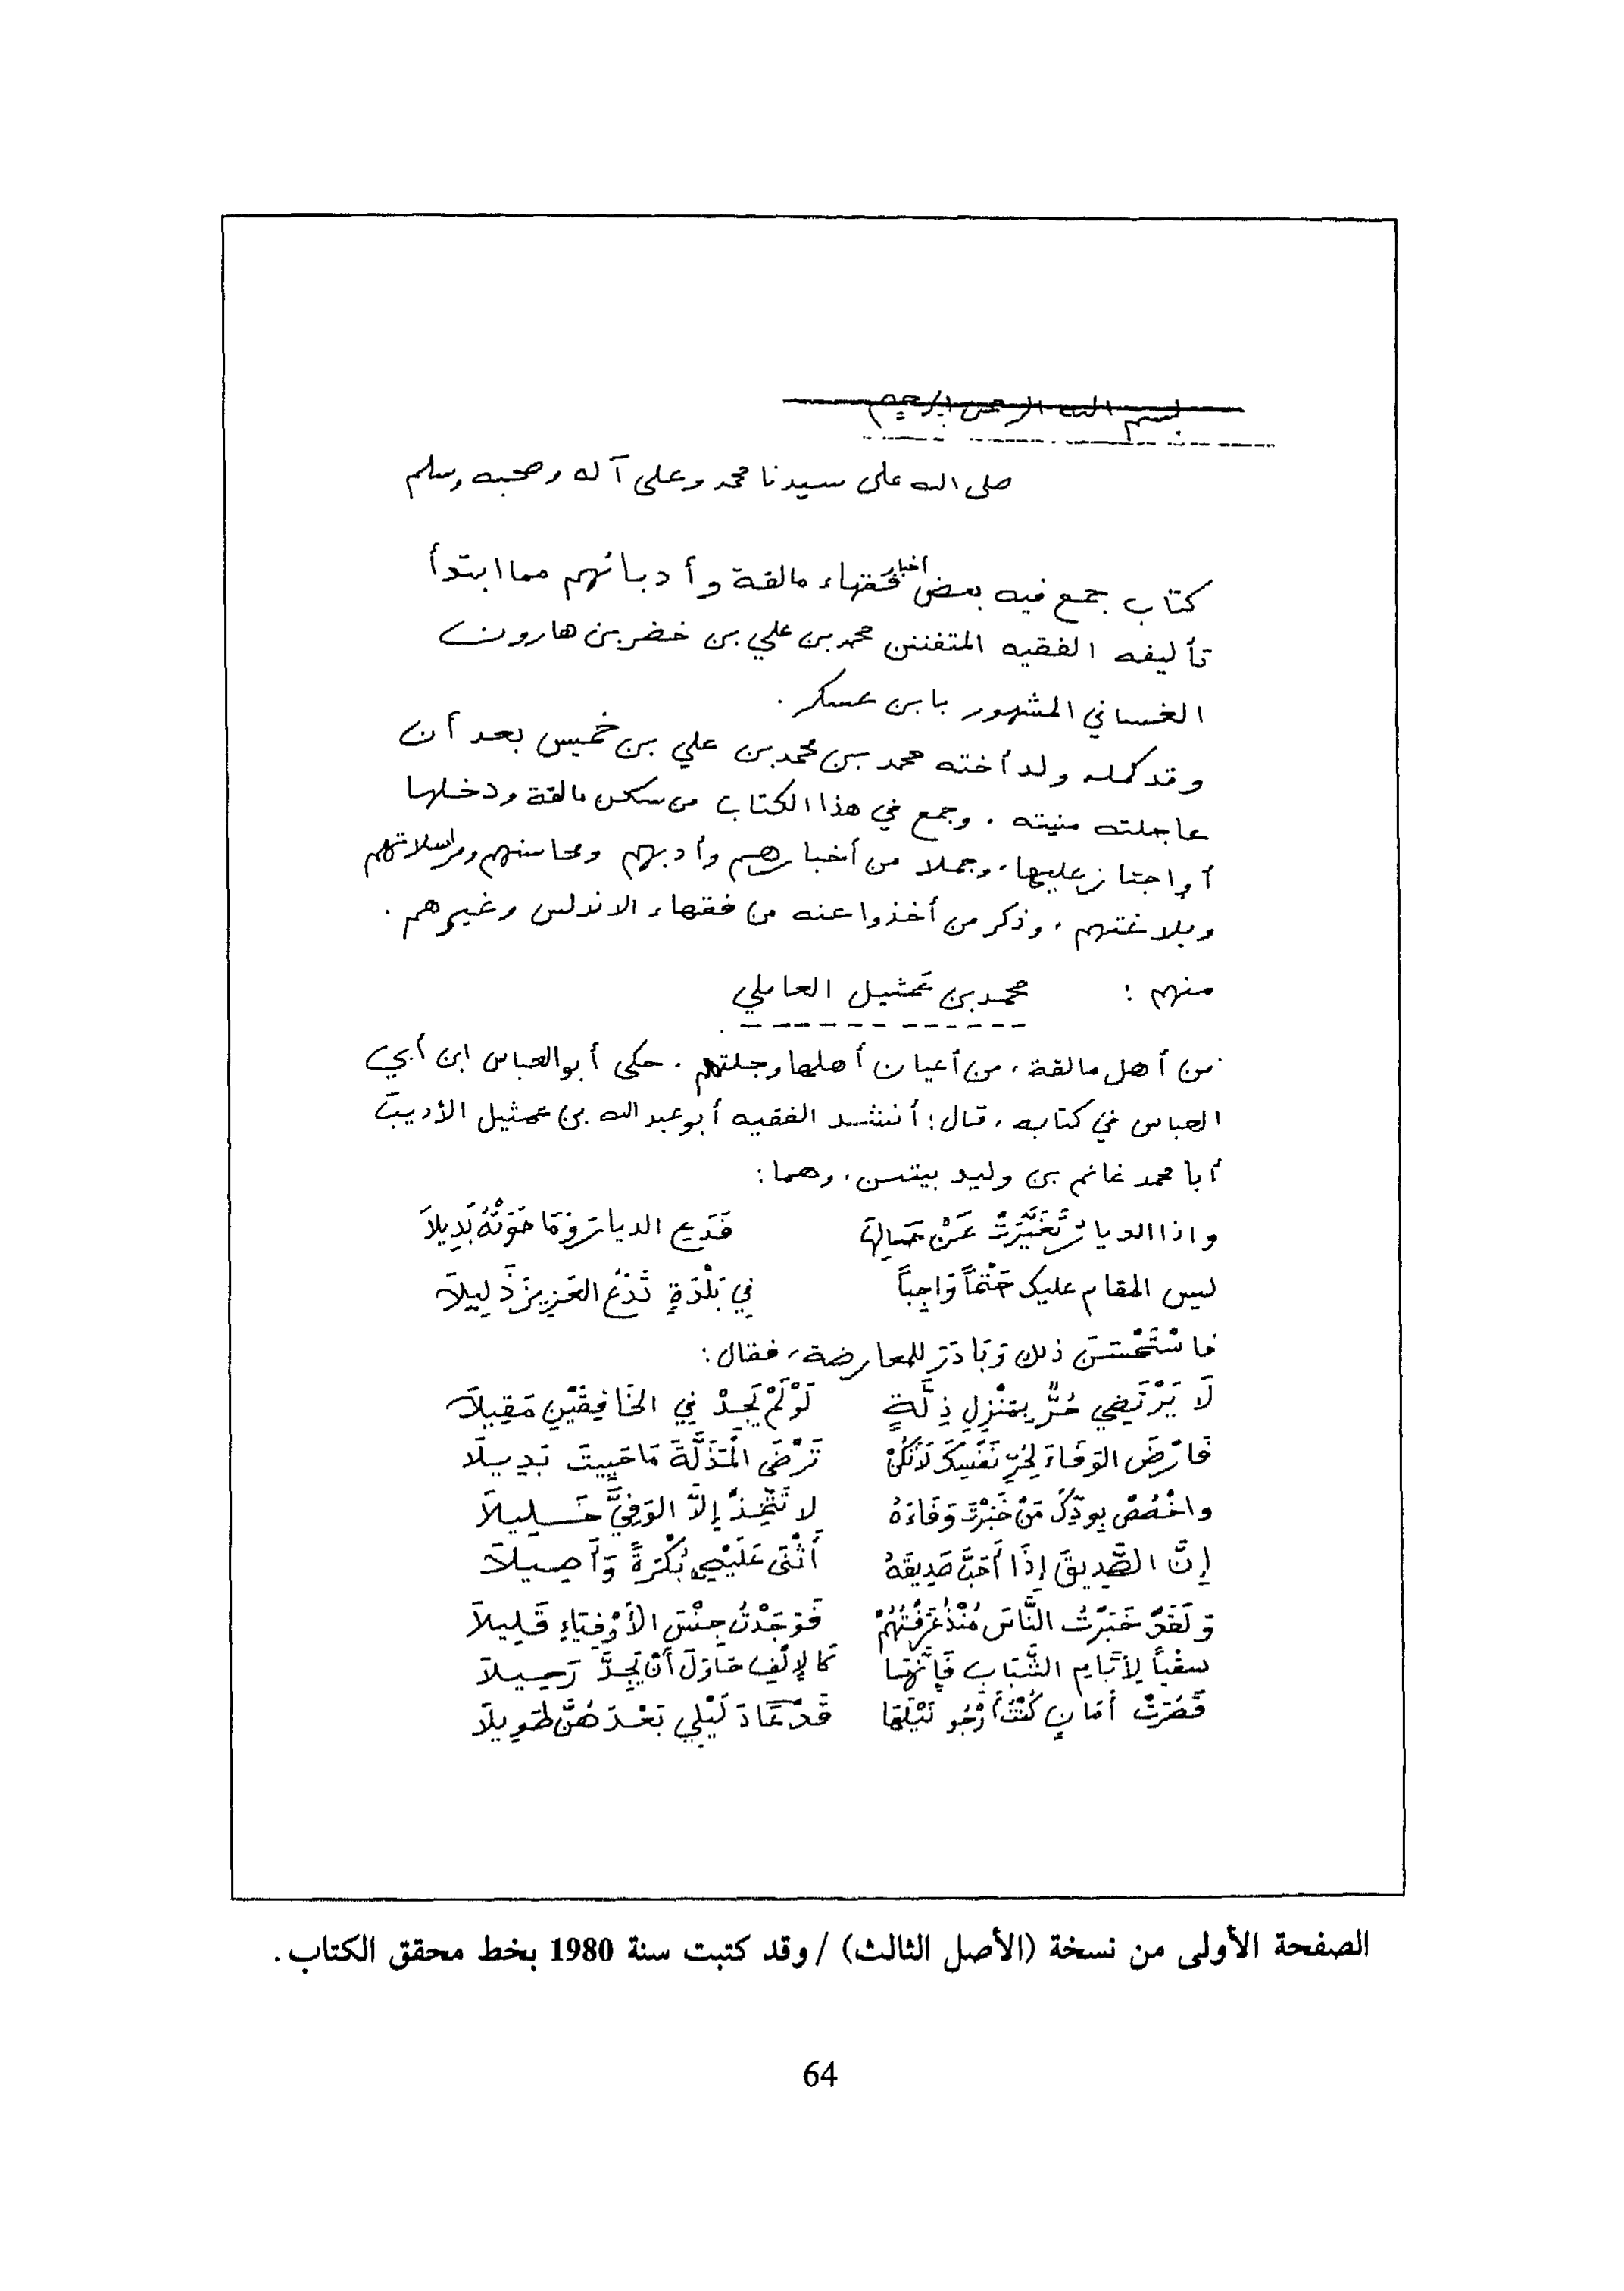 بسم الله الرحمن الرحيم
صلى الله على سيدنا محمد وعلى آله وصحبه وسلم
كتاب جمع فيه بعض أخبار فقهاء مالقة وأدبائهم مما ابتدأ
تأليفه الفقيه المتفنن محمد بن علي بن خضر بن هارون
الغساني المشهور بابن عسكر.
وقد كمله ولد أخته محمد بن محمد بن علي بن خميس بعد أن
عاجلته منيته. وجمع في هذا الكتاب من سكن مالقة ودخلها
أو اجتاز عليها، وجملا من أخبارهم وأدبهم ومحاسنهم ومراسلاتهم
وبلاغتهم، وذكر من أخذوا عنه من فقهاء الاندلس وغيرهم.
منهم : محمد بن عمثيل العاملي
من أهل مالقة، من أعيان أهلها وجلتهم. حكى أبو العباس ابن أبي
العباس في كتابه، قال: أنشد الفقيه أبو عبد الله بن عمثيل الأديبَ
أبا محمد غانم بن وليد بيتين، وهما:
واذا الديارُ تَغَيَّرَتْ عَنْ حَالِهَا فَدَعِ الديارَ وَمَا حَوَتْهُ بَدِيلاَ
ليس المقام عليك حَتْماً وَاجِباً فِي بَلْدَةٍ تَدَعُ العَزِيزَ ذَلِيلاَ
فاسْتَحْسَنَ ذلك وَبَادَرَ للمعارضة، فقال:
لَا يَرْتَضِي حُرٌّ بِمَنْزِلِ ذِلَّةٍ لَوْ لَمْ يَجِدْ فِي الخَافِقَيْنِ مَقِيلاَ
فَارْضَ الوَفَاءَ لِحُرِّ نَفْسِكَ لَا تَكُنْ تَرْضَى الْمَذَلَّةَ مَا حَيِيتَ بَدِيلَا
واخْصُصْ بِوِدِّكَ مَنْ خَبَرْتَ وَفَاءَهُ لا تَتَّخِذْ إِلاَّ الوَفِيَّ خَلِيلاَ
إِنَّ الصَّدِيقَ إِذَا أَحَبَّ صَدِيقَهُ أَثْنَى عَلَيْهِ بُكْرَةً وَأَصِيلاَ
وَلَقَدْ خَبَرْتُ النَّاسَ مُنْذُ عَرَفْتُهُمْ فَوَجَدْتُ جِنْسَ الأَوْفِيَاءِ قَلِيلاَ
سقْياً لِأَيَّامِ الشَّبَابِ فَإِنَّهَا كَالإِلْفِ حَاوَلَ أَنْ يَجِدَّ رَحِيلاَ
قَصُرَتْ أَمَانٍ كُنْتُ أَرْجُو نَيْلَهَا قَدْ عَادَ لَيْلِي بَعْدَهُنَّ طَوِيلاَ
الصفحة الأولى من نسخة (الأصل الثالث) / وقد كتبت سنة 1980 بخط محقق الكتاب.
64